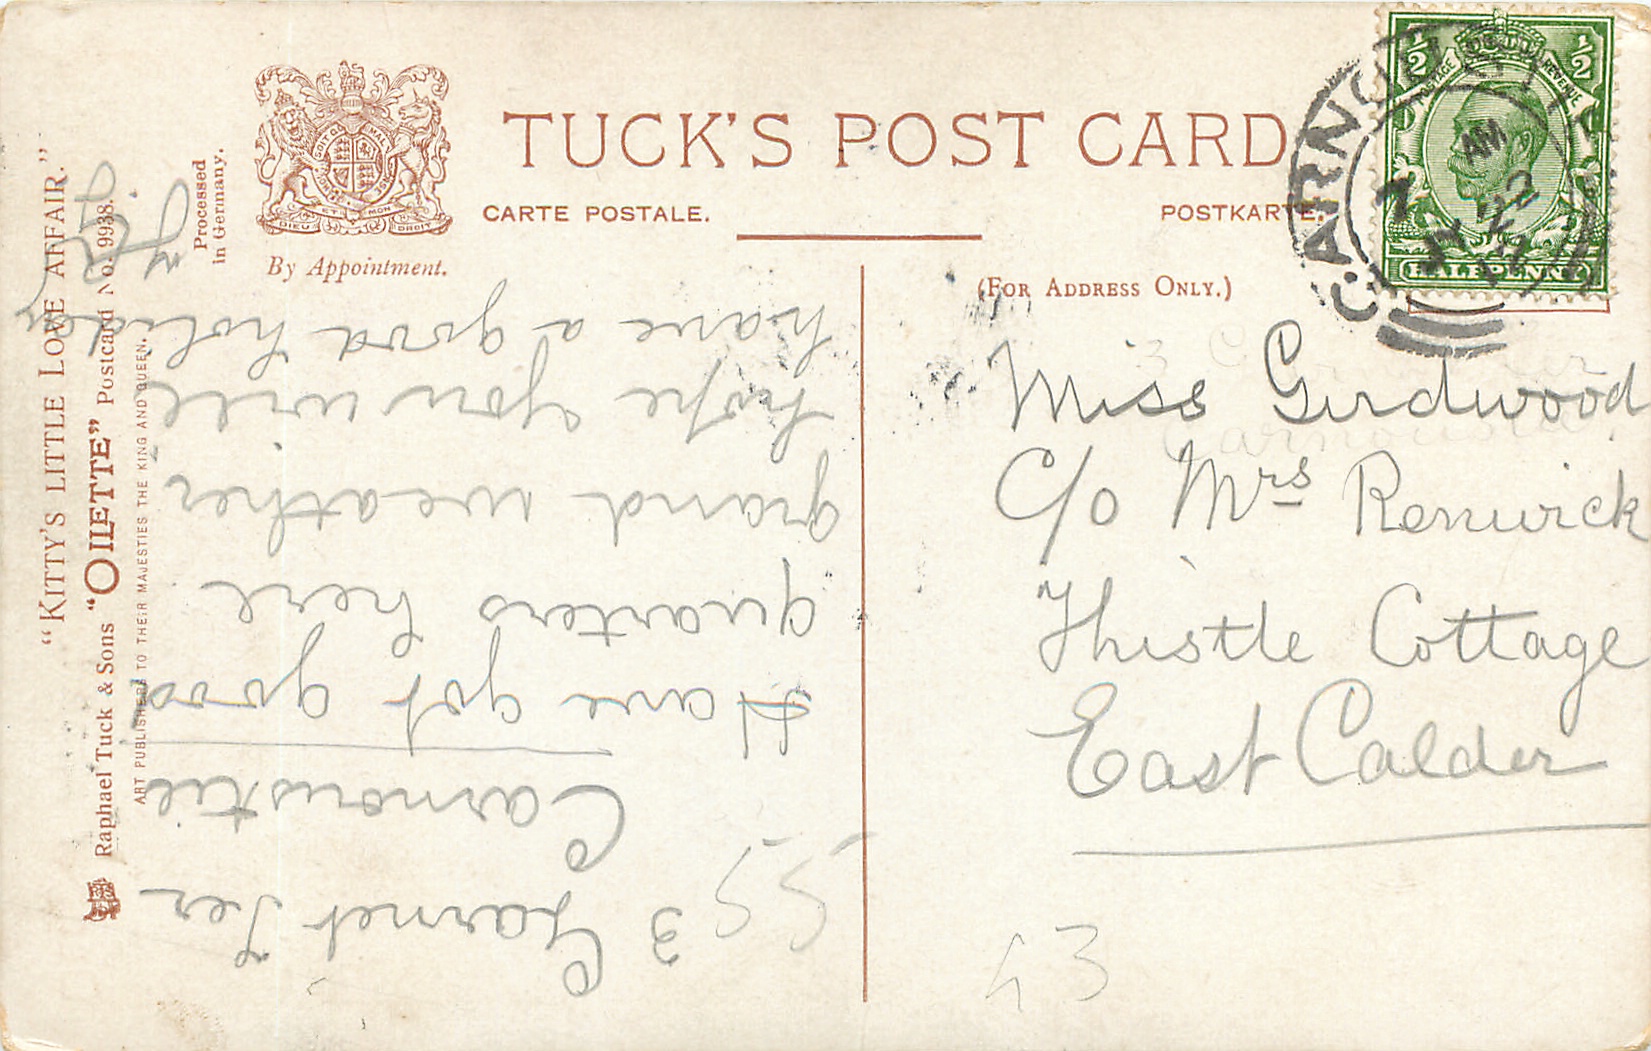 TUCK'S POST CARD
CARTE POSTALE.
POSTKARTE.
By Appointment.
(FOR ADDRESS ONLY.)
Processed
in Germany.
"KITTY'S LITTLE LOVE AFFAIR."
Raphael Tuck & Sons "OILETTE" Postcard No. 9938.
ART PUBLISHERS TO THEIR MAJESTIES THE KING AND QUEEN.
DIEU ET MON DROIT
1/2 1/2
POSTAGE REVENUE
HALFPENNY
CARNOUSTIE
AM
22
Miss Girdwood
C/o Mrs Renwick
Thistle Cottage
East Calder
43
55
3 Garnet Ter
Carnoustie
Have got good
quarters here
grand weather
hope you will
have a good holiday